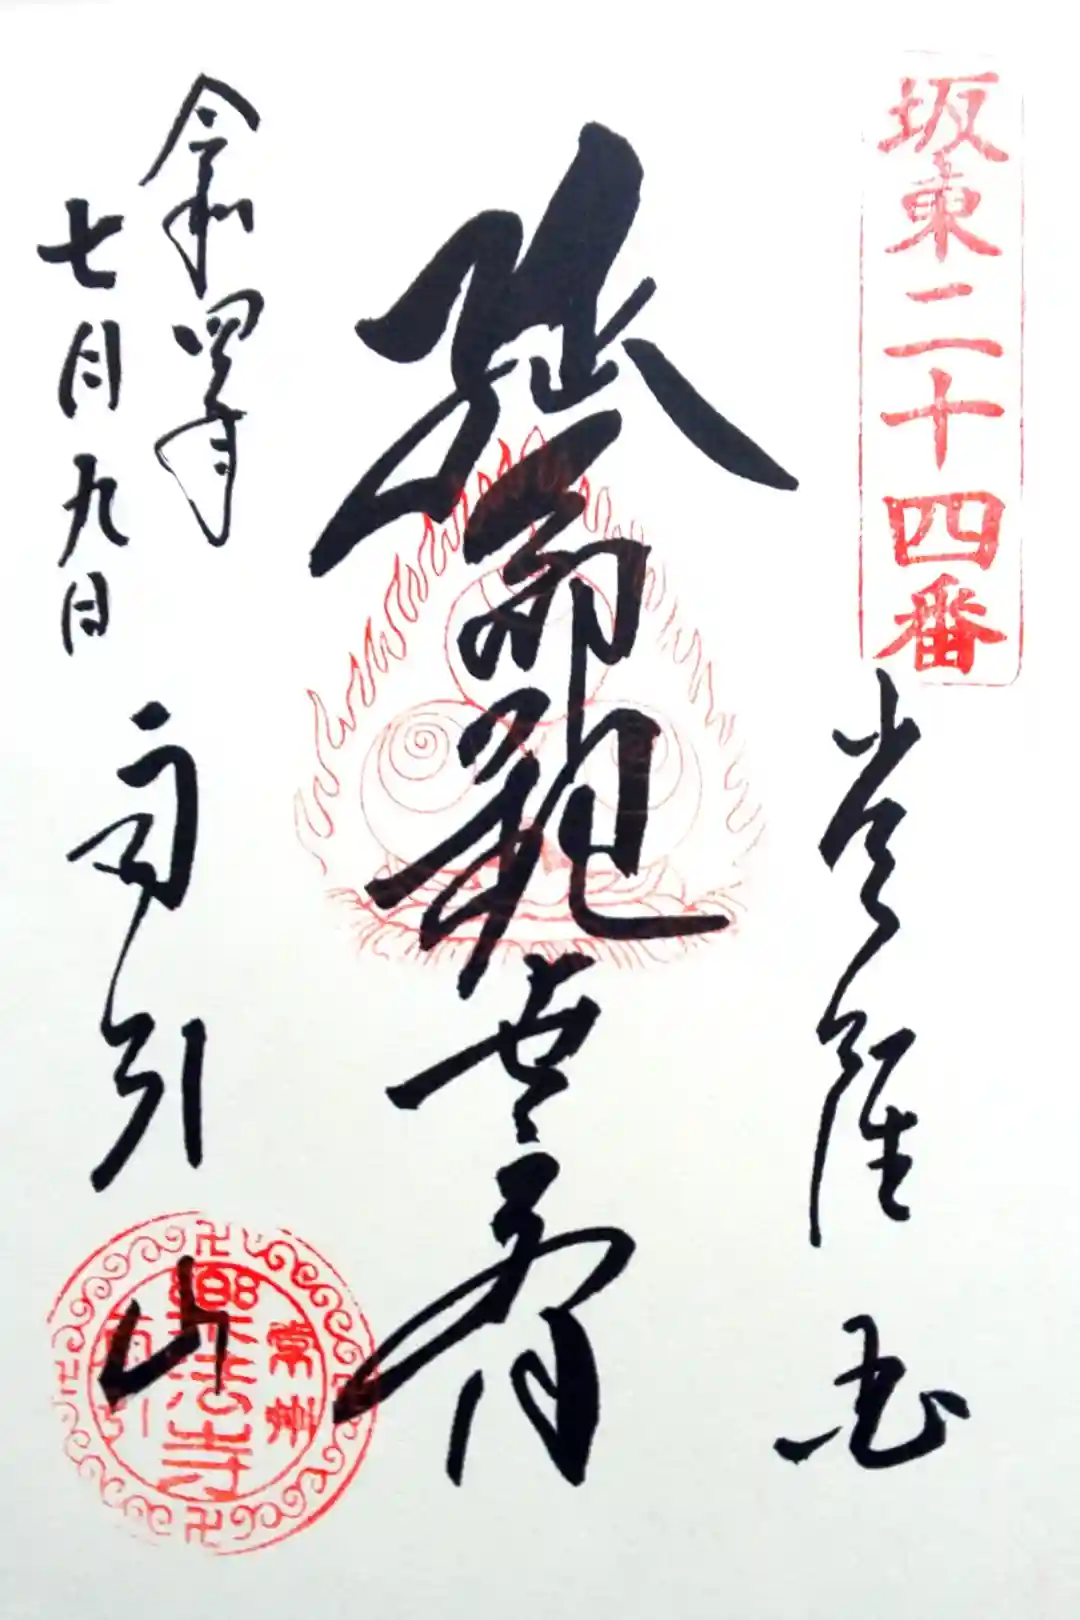 坂東二十四番
常陸国
延命観世音
令和四年
七月九日
雨引山
常州
樂法寺